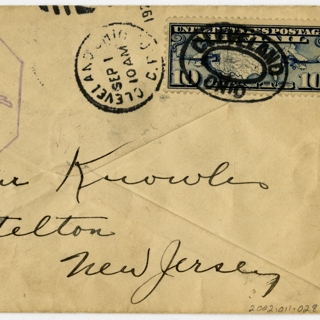 CLEVELAND, OHIO
SEP 1
10 AM
UNITED STATES POSTAGE
CLEVELAND
OHIO
10
10
Knowles
telton
New Jersey
2002.011.029